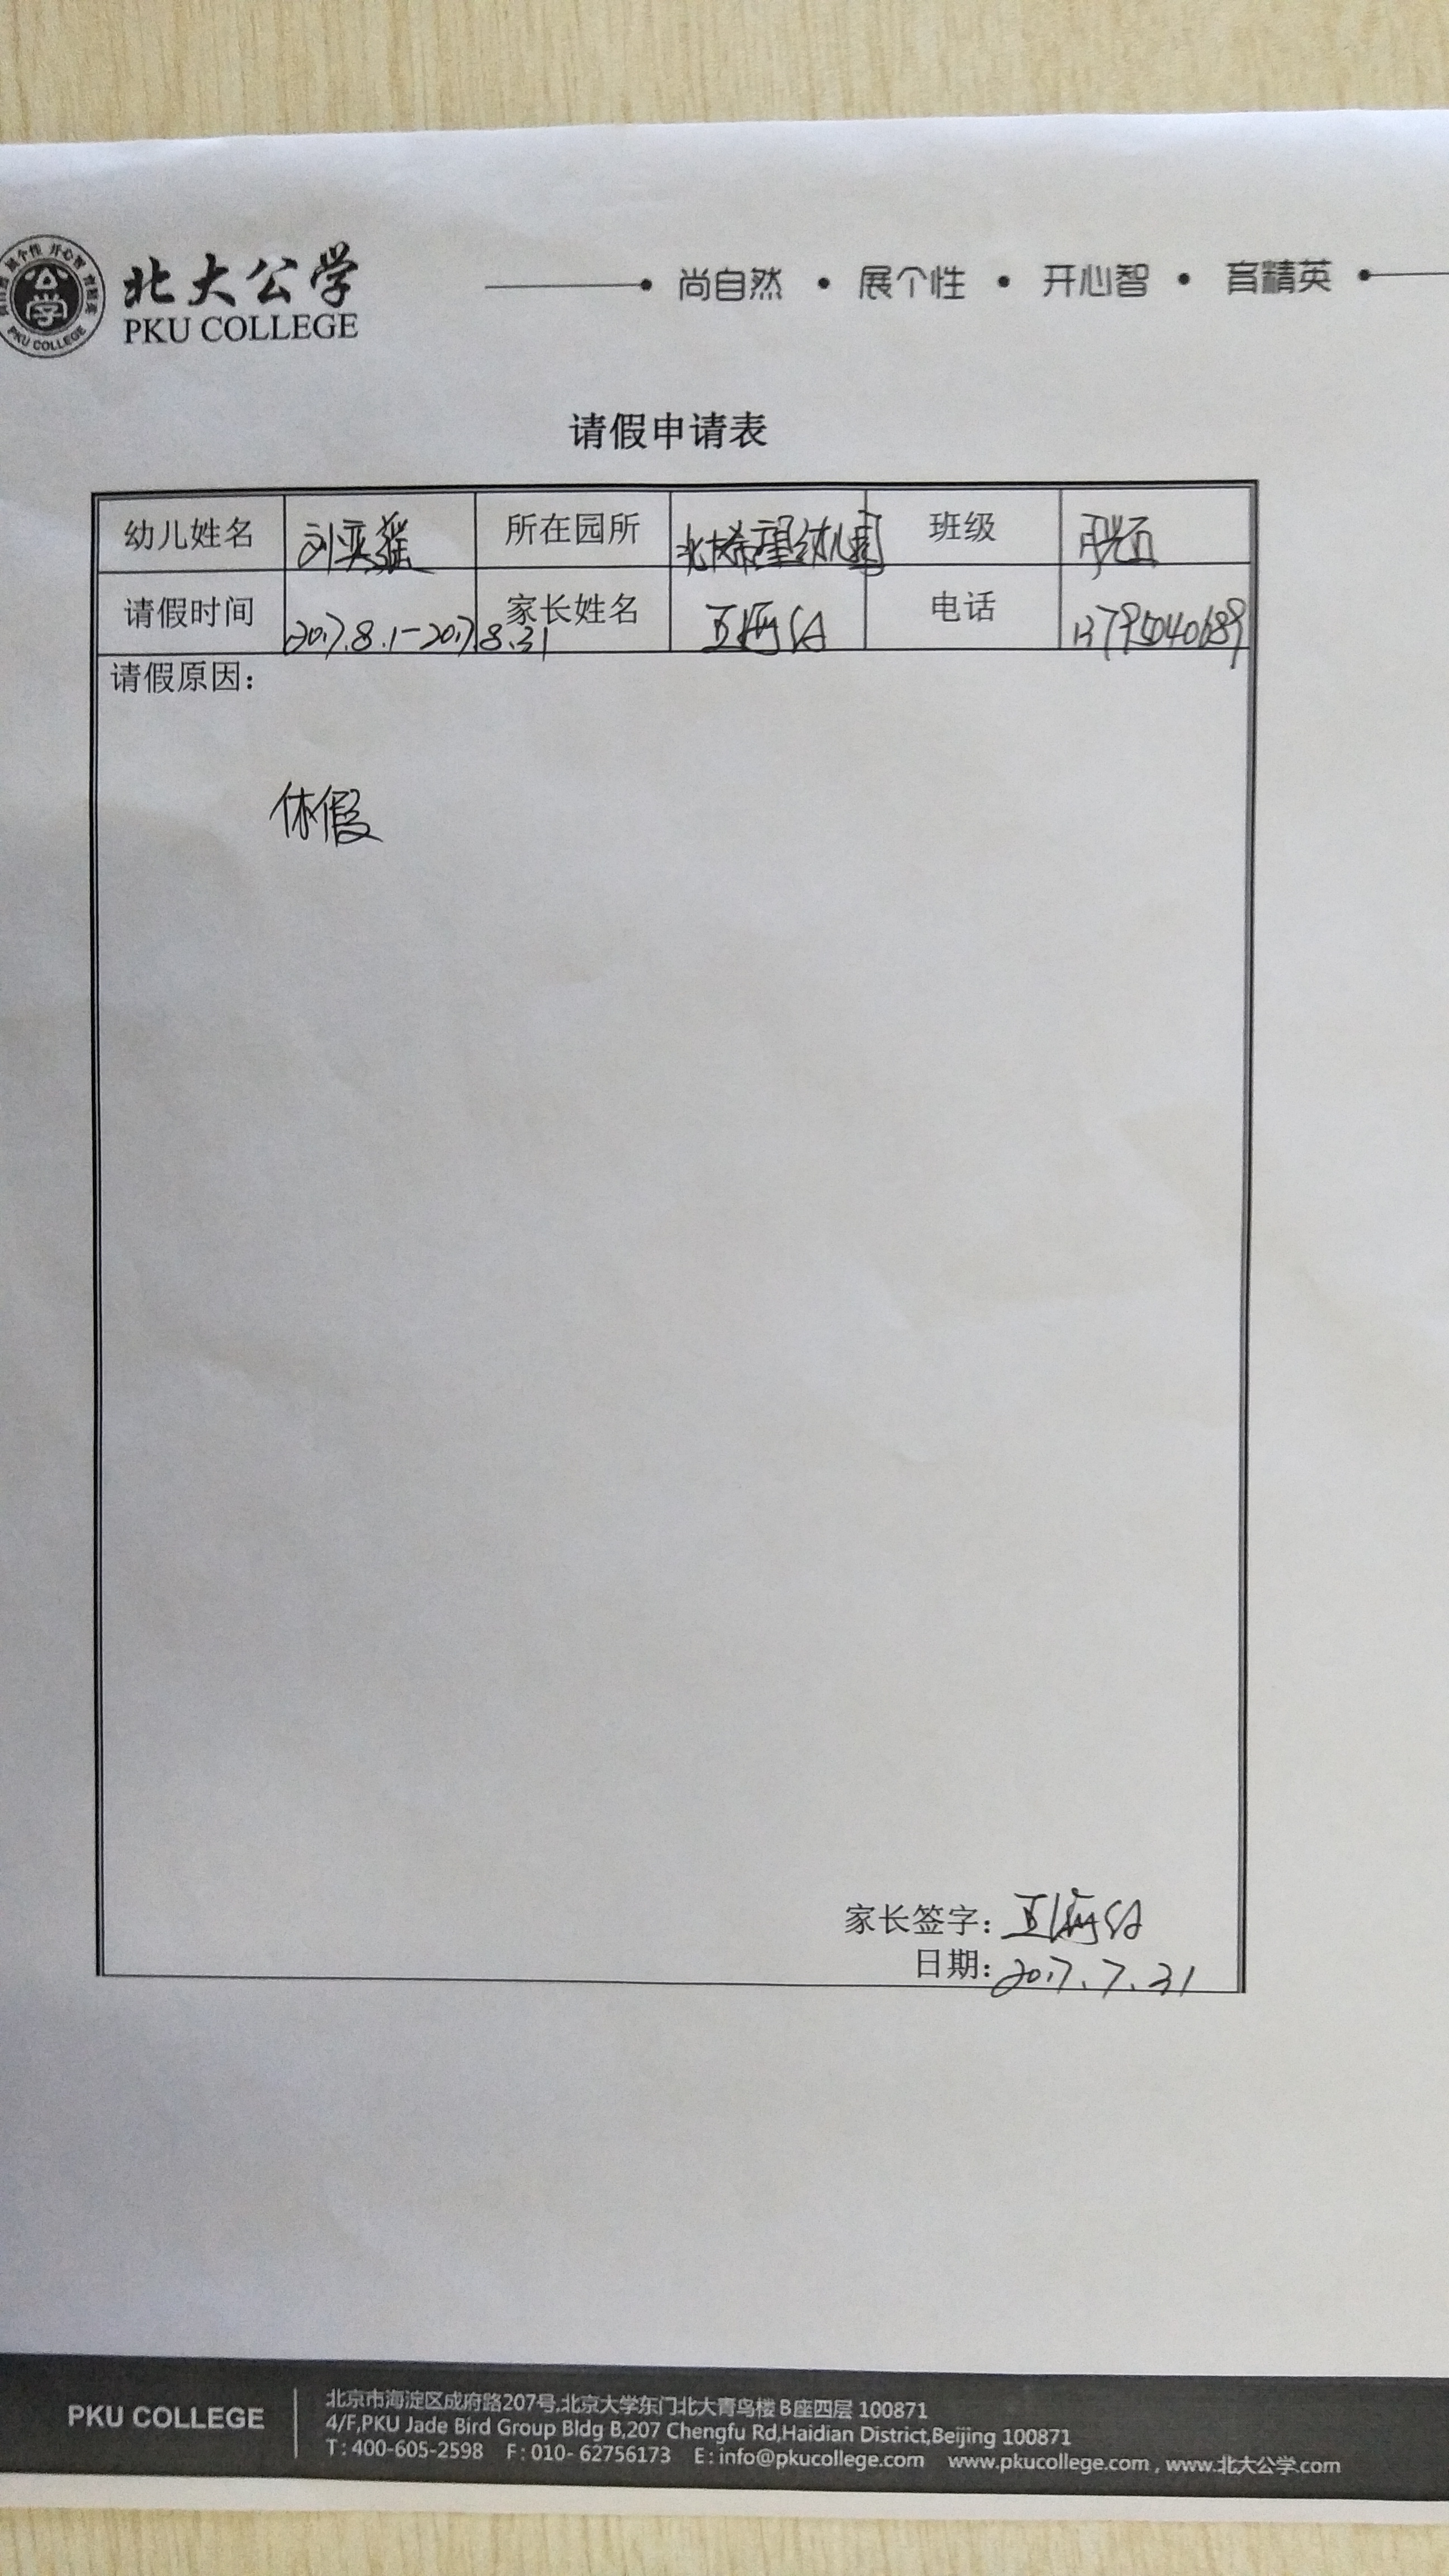 北大公学
PKU COLLEGE
尚自然 • 展个性 • 开心智 • 育精英
请假申请表
幼儿姓名 刘奕 所在园所 北大希望幼儿园 班级
请假时间 2017.8.1-2017.8.31 家长姓名 电话 13795040689
请假原因：
休假
家长签字：
日期：2017.7.31
PKU COLLEGE
北京市海淀区成府路207号,北京大学东门北大青鸟楼B座四层 100871
4/F,PKU Jade Bird Group Bldg B,207 Chengfu Rd,Haidian District,Beijing 100871
T : 400-605-2598 F : 010- 62756173 E : info@pkucollege.com www.pkucollege.com , www.北大公学.com